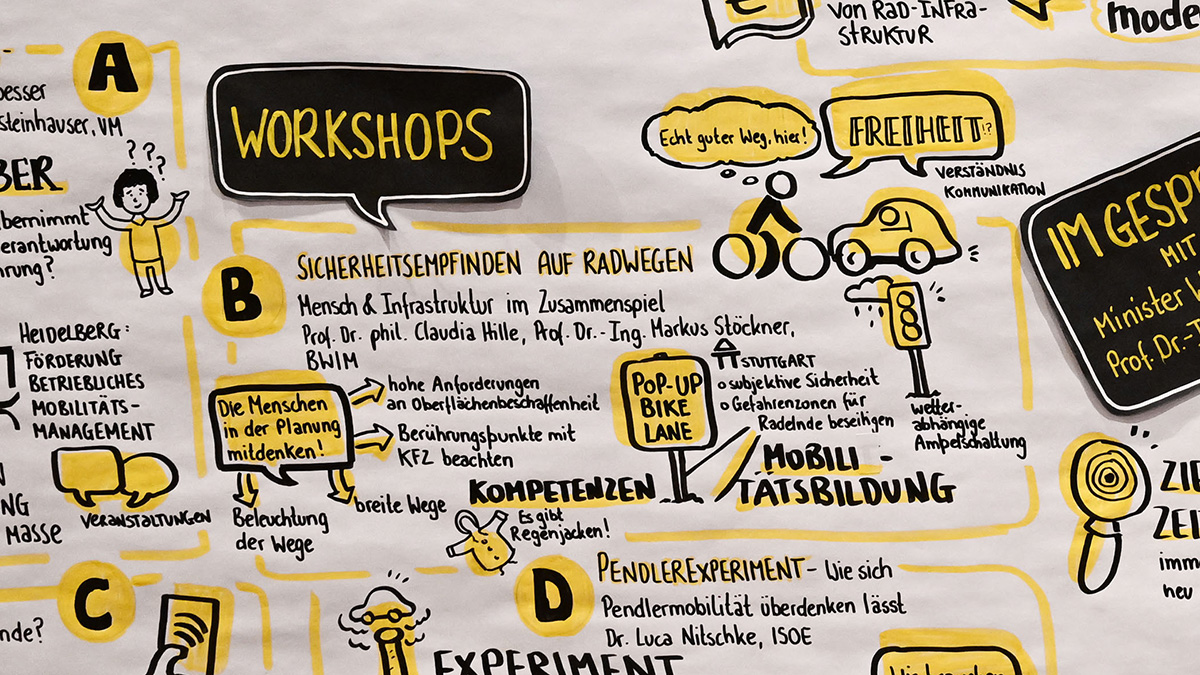 von Rad-Infra-
struktur
mode
A
besser
steinhauser, VM
BER
???
bernimmt
erantwortung
hrung?
WORKSHOPS
Echt guter Weg, hier!
FREIHEIT!?
Verständnis
Kommunikation
IM GESPR
MIT
Minister W
Prof. Dr.-I
B
Sicherheitsempfinden auf Radwegen
Mensch & Infrastruktur im Zusammenspiel
Prof. Dr. phil. Claudia Hille, Prof. Dr.-Ing. Markus Stöckner,
BWIM
Heidelberg:
Förderung
Betriebliches
Mobilitäts-
management
Veranstaltungen
NG
Masse
Die Menschen
in der Planung
mitdenken!
hohe Anforderungen
an Oberflächenbeschaffenheit
Berührungspunkte mit
KFZ beachten
breite Wege
Beleuchtung
der Wege
Pop-up
Bike
Lane
Stuttgart
subjektive Sicherheit
Gefahrenzonen für
Radelnde beseihigen
wetter-
abhängige
Ampelschaltung
Kompetenzen
Mobili-
tätsbildung
Es gibt
Regenjacken!
ZIE
ZEI
imm
neu
C
nde?
D
Pendlerexperiment - Wie sich
Pendlermobilität überdenken lässt
Dr. Luca Nitschke, ISOE
EXPERIMENT